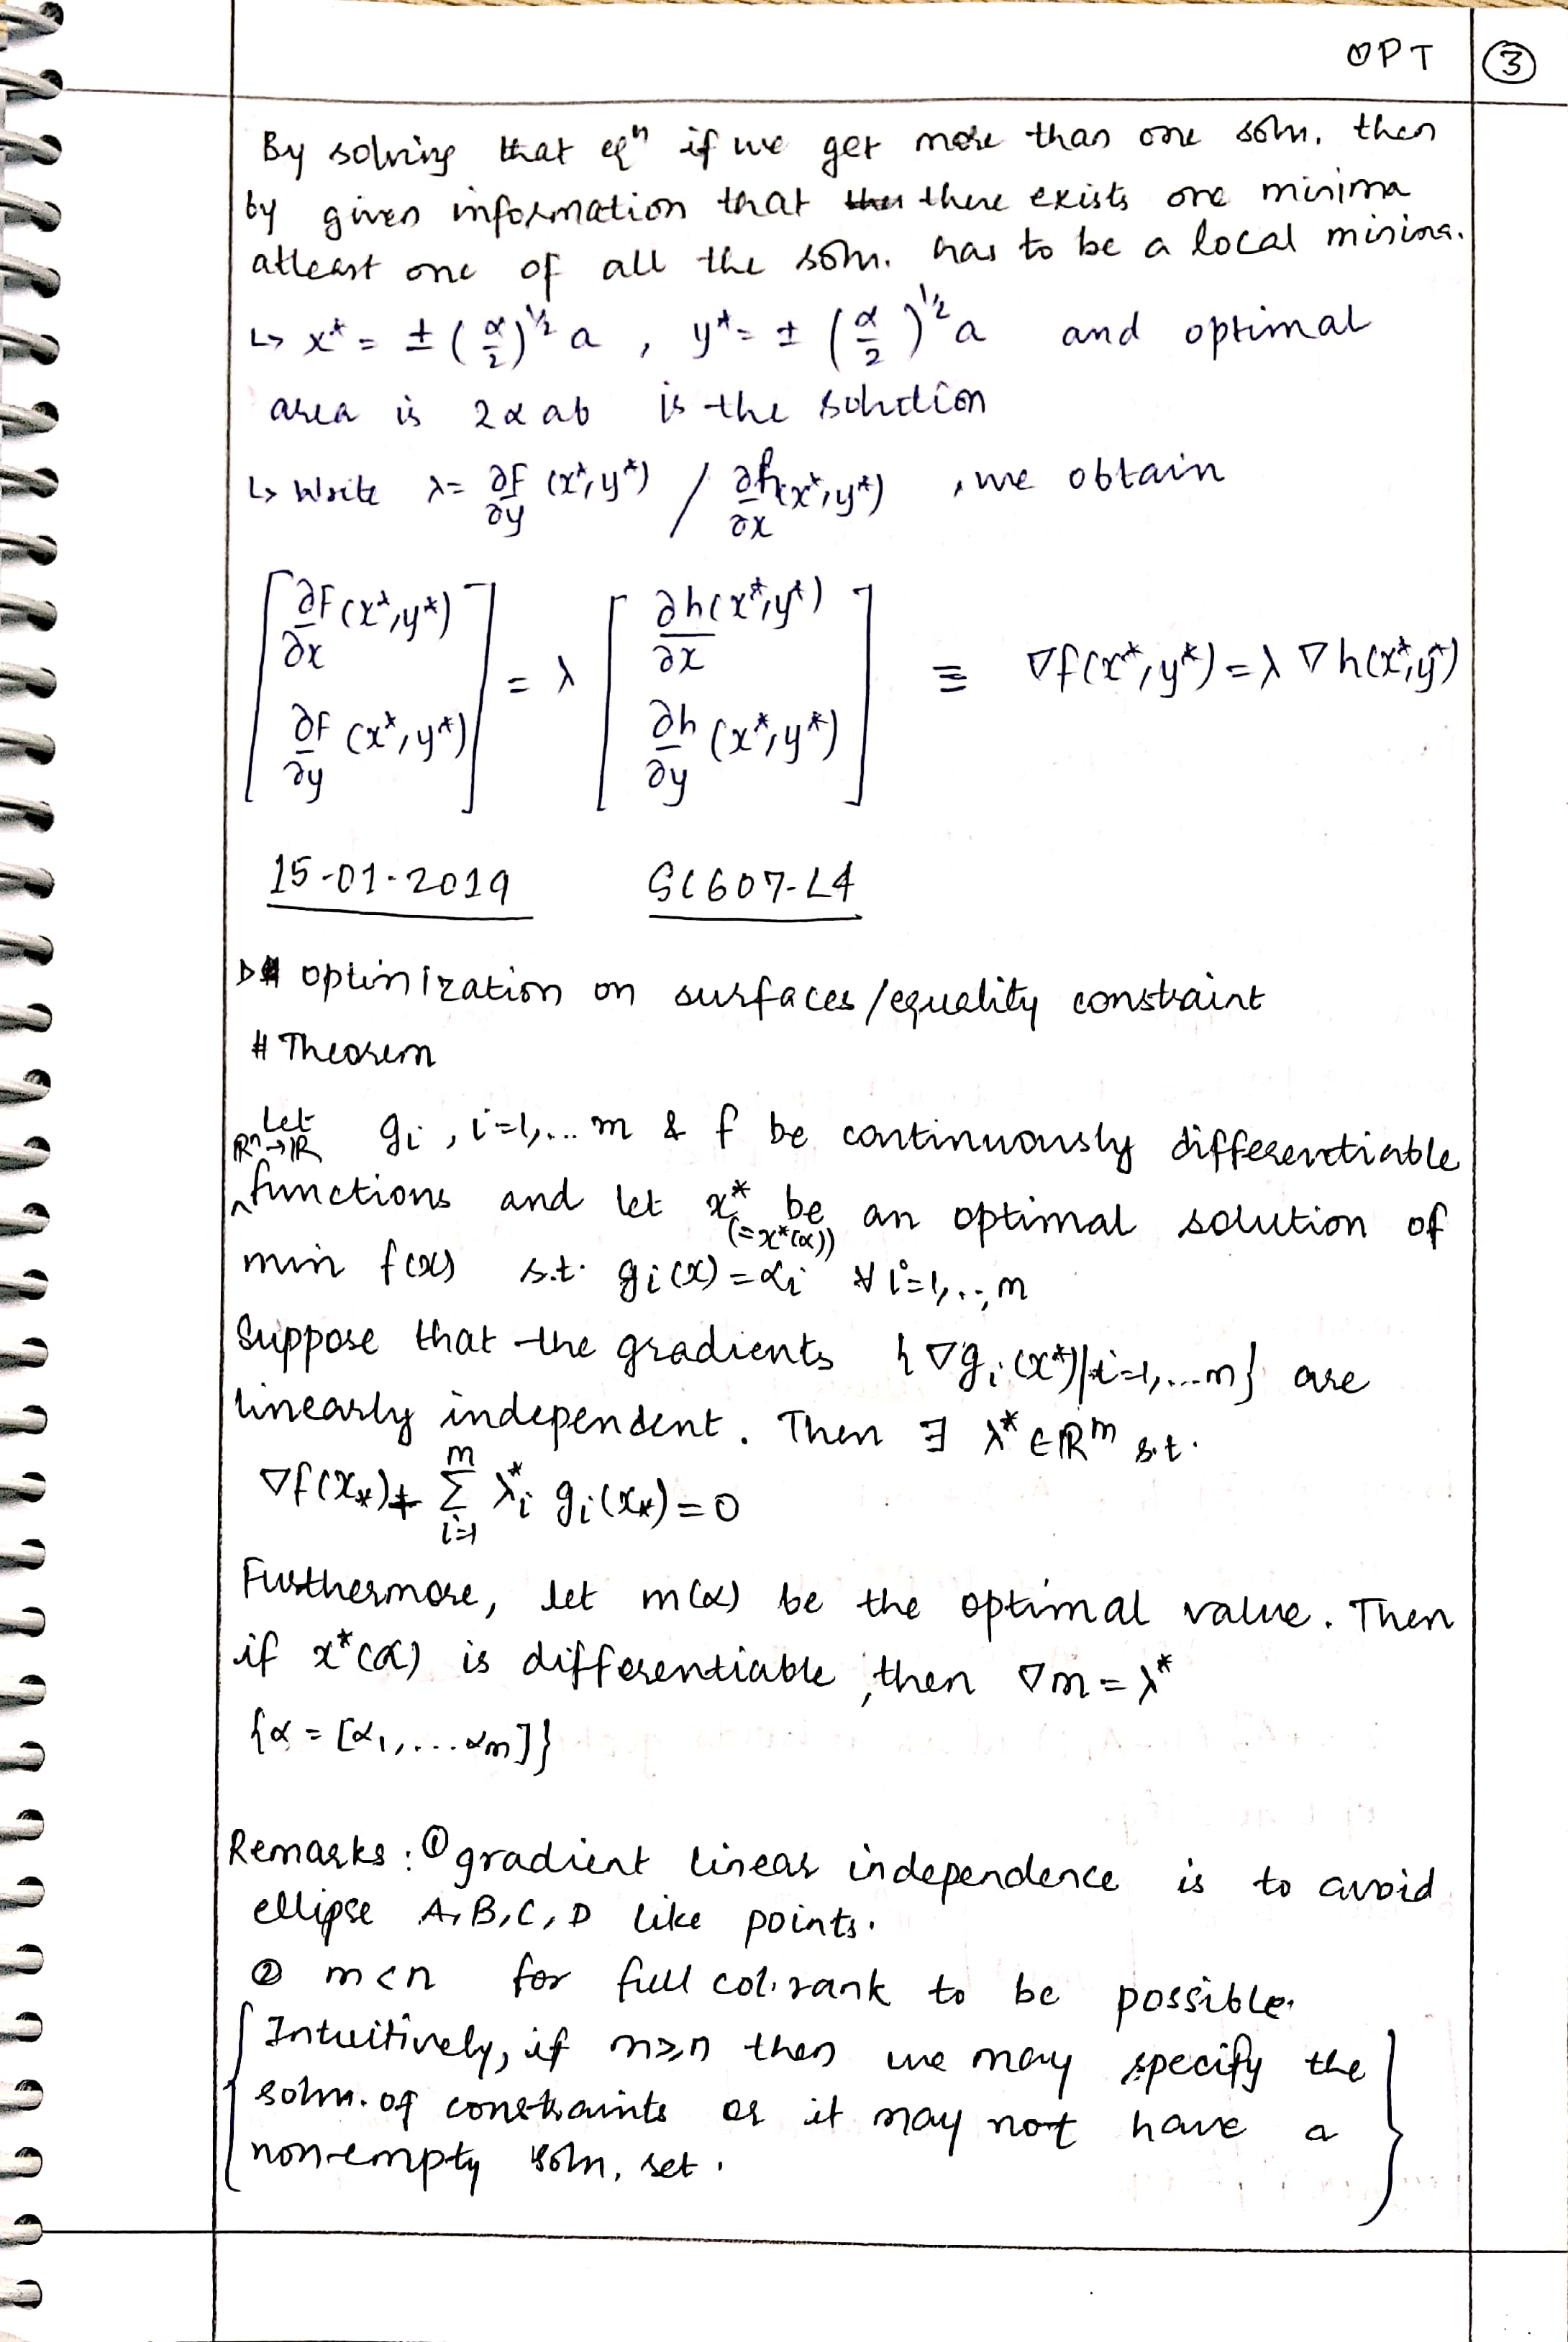 OPT 3
By solving that eqⁿ if we get more than one soln. then
by given information that there exists one minima
atleast one of all the soln. has to be a local minima.
↳ x* = ± (α/2)^1/2 a , y* = ± (α/2)^1/2 a and optimal
area is 2αab is the solution
↳ Write λ = ∂f/∂y (x*,y*) / ∂h/∂x (x*,y*) , we obtain
[∂F/∂x (x*,y*) ; ∂F/∂y (x*,y*)] = λ [∂h/∂x (x*,y*) ; ∂h/∂y (x*,y*)] ≡ ∇f(x*,y*) = λ ∇h(x*,y*)
15-01-2019 SC607-L4
▷ optimization on surfaces/equality constraint
# Theorem
Let gi , i=1,... m & f be continuously differentiable
ℝⁿ→ℝ functions and let x* (=x*(α)) be an optimal solution of
min f(x) s.t. gi(x) = αi ∀ i=1,..,m
Suppose that the gradients {∇gi(x*)|i=1,...m} are
linearly independent. Then ∃ λ* ∈ ℝᵐ s.t.
∇f(x*) + Σ_{i=1}^{m} λi* gi(x*) = 0
Furthermore, let m(α) be the optimal value. Then
if x*(α) is differentiable, then ∇m = λ*
{α = [α1,...αm]}
Remarks: ① gradient linear independence is to avoid
ellipse A,B,C,D like points.
② m<n for full col. rank to be possible.
{Intuitively, if m≥n then we may specify the
soln. of constraints or it may not have a
non-empty soln. set.}